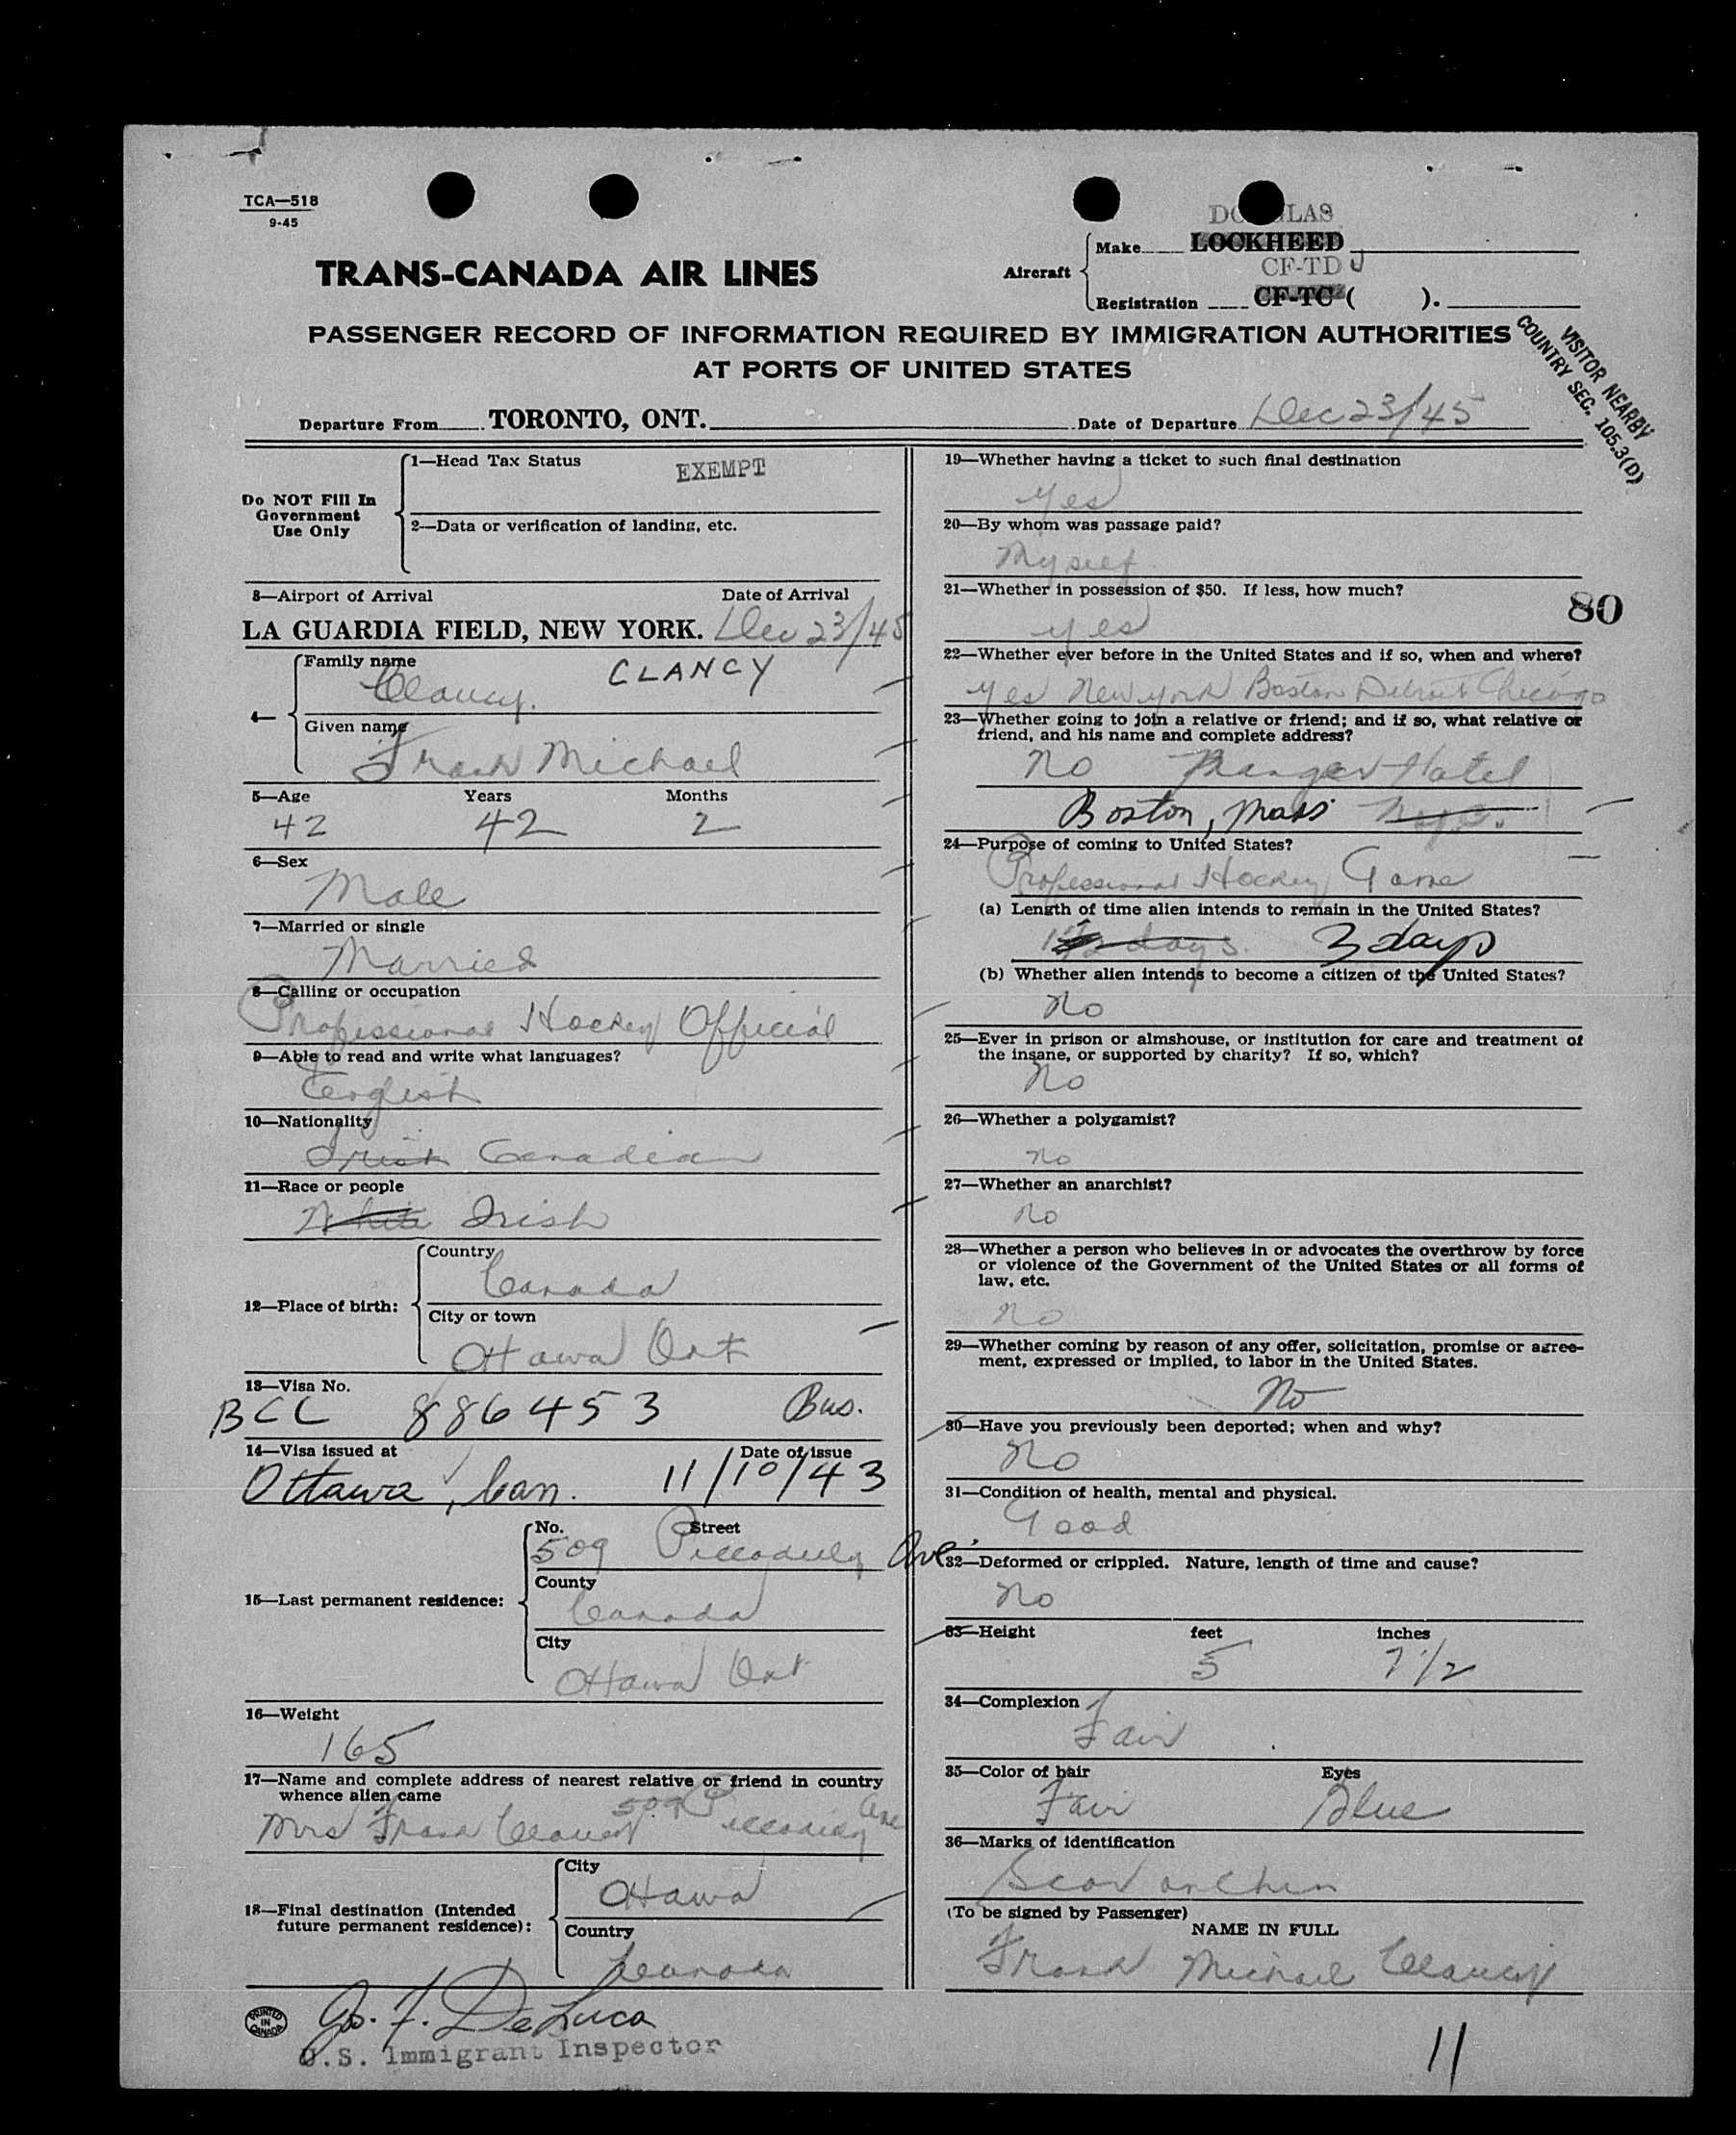 TCA—518
9-45
DOUGLAS
Make LOCKHEED
TRANS-CANADA AIR LINES
Aircraft
CF-TD J
Registration CF-TC ( ).
PASSENGER RECORD OF INFORMATION REQUIRED BY IMMIGRATION AUTHORITIES
AT PORTS OF UNITED STATES
VISITOR NEARBY
COUNTRY SEC. 105.3(D)
Departure From TORONTO, ONT. Date of Departure Dec 23/45
Do NOT Fill In
Government
Use Only
1—Head Tax Status EXEMPT
2—Data or verification of landing, etc.
3—Airport of Arrival Date of Arrival
LA GUARDIA FIELD, NEW YORK. Dec 23/45
4—
Family name CLANCY
Clancy.
Given name
Frank Michael
5—Age Years Months
42 42 2
6—Sex
Male
7—Married or single
Married
8—Calling or occupation
Professional Hockey Official
9—Able to read and write what languages?
English
10—Nationality
Irish Canadian
11—Race or people
White Irish
12—Place of birth:
Country
Canada
City or town
Ottawa Ont
13—Visa No.
BCC 886453 Bus.
14—Visa issued at Date of issue
Ottawa, Can. 11/10/43
15—Last permanent residence:
No. Street
509 Piccadilly Ave.
County
Canada
City
Ottawa Ont
16—Weight
165
17—Name and complete address of nearest relative or friend in country
whence alien came
Mrs Frank Clancy 509 Piccadilly Ave
18—Final destination (Intended
future permanent residence):
City
Ottawa
Country
Canada
PRINTED
IN
CANADA
Jo. F. DeLuca
U.S. Immigrant Inspector
19—Whether having a ticket to such final destination
Yes
20—By whom was passage paid?
Myself
21—Whether in possession of $50. If less, how much?
80
yes
22—Whether ever before in the United States and if so, when and where?
yes New York Boston Detroit Chicago
23—Whether going to join a relative or friend; and if so, what relative or
friend, and his name and complete address?
No Manger Hotel
Boston, Mass N.Y.C.
24—Purpose of coming to United States?
Professional Hockey Game
(a) Length of time alien intends to remain in the United States?
days. 3 days
(b) Whether alien intends to become a citizen of the United States?
No
25—Ever in prison or almshouse, or institution for care and treatment of
the insane, or supported by charity? If so, which?
No
26—Whether a polygamist?
no
27—Whether an anarchist?
no
28—Whether a person who believes in or advocates the overthrow by force
or violence of the Government of the United States or all forms of
law, etc.
no
29—Whether coming by reason of any offer, solicitation, promise or agree-
ment, expressed or implied, to labor in the United States.
No
30—Have you previously been deported; when and why?
No
31—Condition of health, mental and physical.
Good
32—Deformed or crippled. Nature, length of time and cause?
No
33—Height feet inches
5 7 1/2
34—Complexion
Fair
35—Color of hair Eyes
Fair Blue
36—Marks of identification
Scar on Chin
(To be signed by Passenger)
NAME IN FULL
Frank Michael Clancy
11